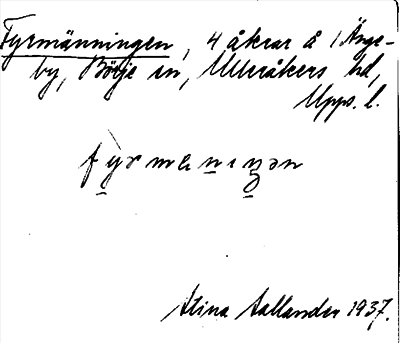 Fyrmänningen, 4 åkrar å 1 Änge-
by, Börje sn, Ulleråkers hd,
Upps. l.
fyrmeniŋən
Stina Aallander 1937.